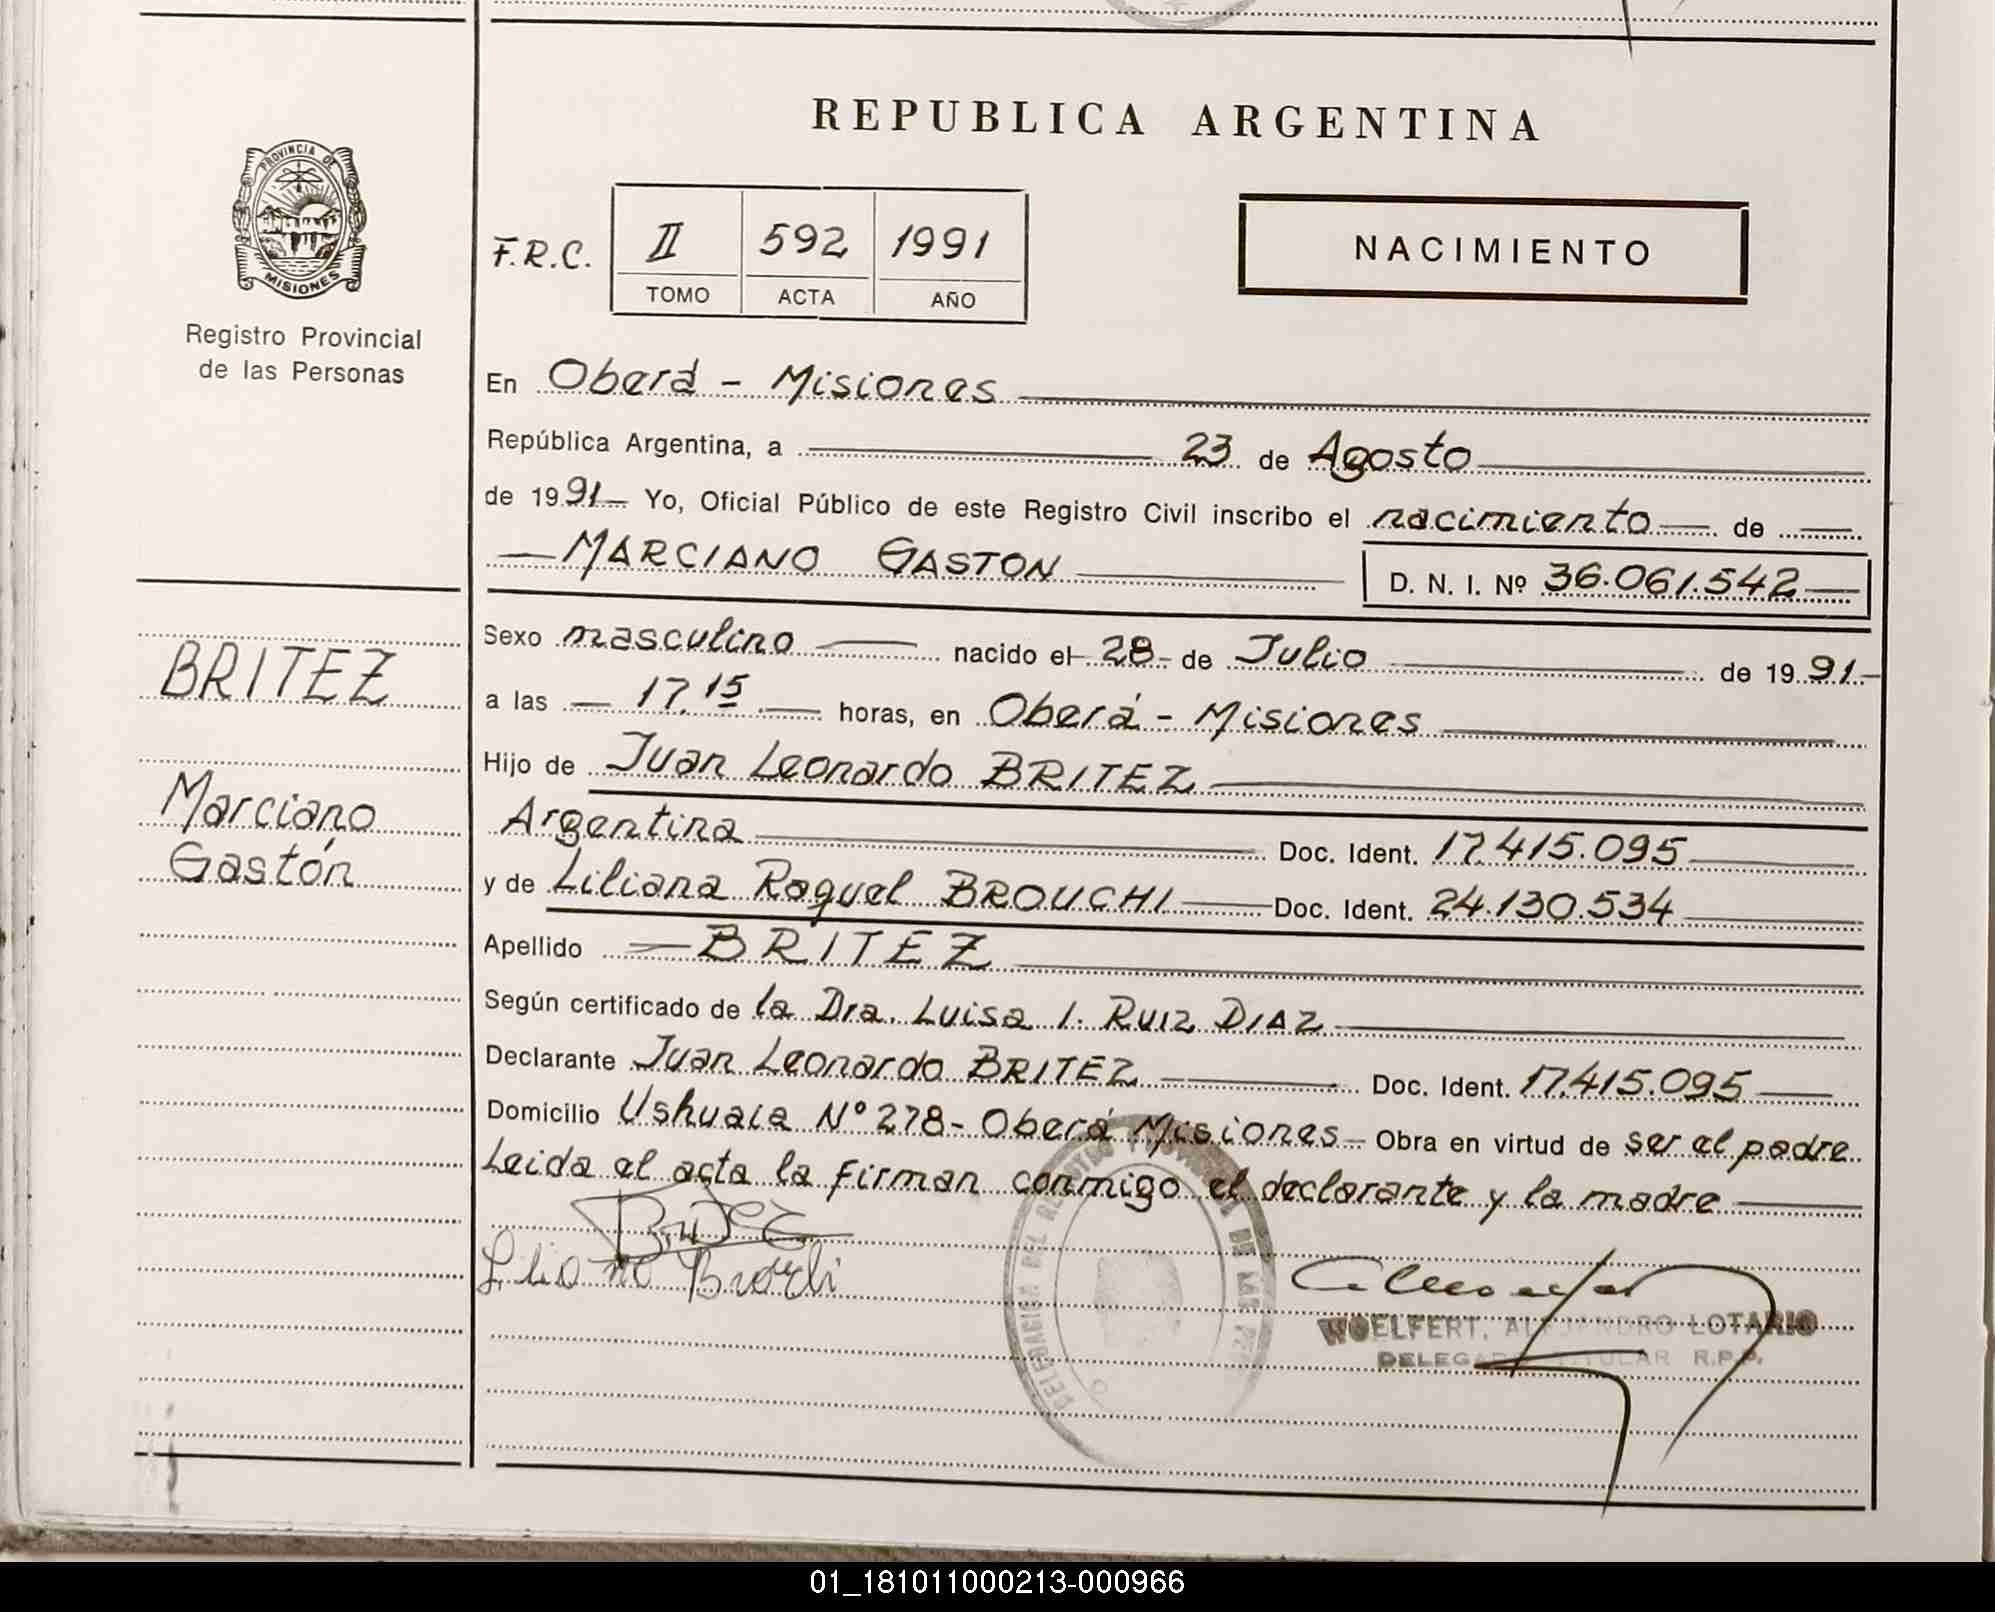 REPUBLICA ARGENTINA
PROVINCIA DE
MISIONES
Registro Provincial
de las Personas
F.R.C. II 592 1991
TOMO ACTA AÑO
NACIMIENTO
En Oberá - Misiones
República Argentina, a 23 de Agosto
de 1991 Yo, Oficial Público de este Registro Civil inscribo el nacimiento de
MARCIANO GASTON D. N. I. Nº 36.061.542
Sexo masculino nacido el 28 de Julio de 1991
a las 17.15 horas, en Oberá - Misiones
Hijo de Juan Leonardo BRITEZ
Argentina Doc. Ident. 17.415.095
y de Liliana Raquel BROUCHI Doc. Ident. 24.130.534
Apellido BRITEZ
Según certificado de la Dra. Luisa I. RUIZ DIAZ
Declarante Juan Leonardo BRITEZ Doc. Ident. 17.415.095
Domicilio Ushuaia Nº 278 - Oberá Misiones Obra en virtud de ser el padre
Leida el acta la firman conmigo el declarante y la madre
BRITEZ
Marciano
Gastón
WOELFERT, ALEJANDRO LOTARIO
DELEGADO TITULAR R.P.P.
01_181011000213-000966